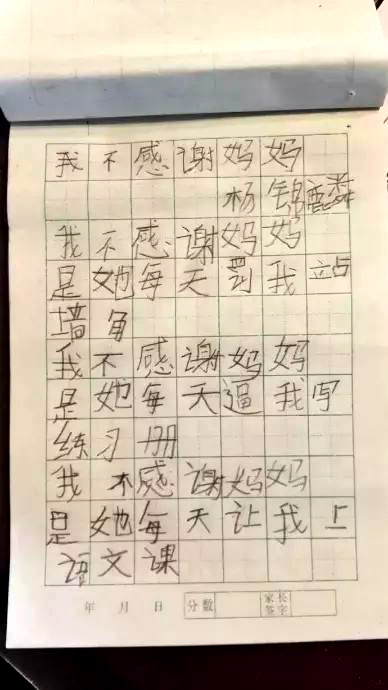 我不感谢妈妈
杨锦麟
我不感谢妈妈
是她每天罚我站
墙角
我不感谢妈妈
是她每天逼我写
练习册
我不感谢妈妈
是她每天让我上
语文课
年 月 日 分数 家长签字